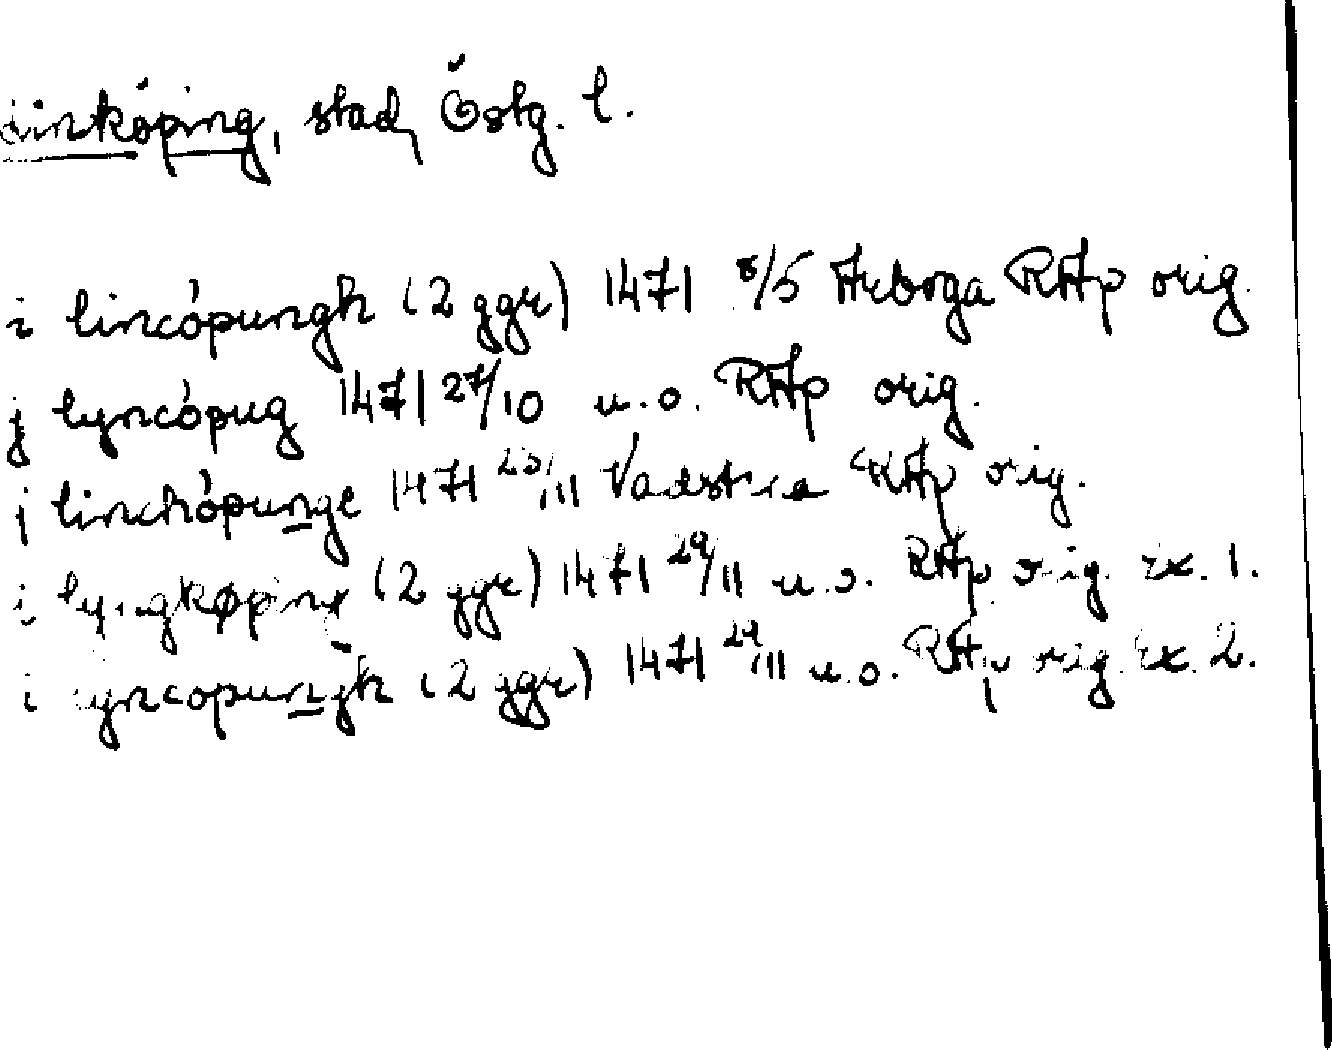 Linköping, stad, Östg. l.
i lincópungh (2 ggr) 1471 8/5 Arboga RAp orig.
j lyncópug 1471 27/10 u.o. RAp orig.
j linchópunge 1471 20/11 Vadstena RAp orig.
i lyngkøping (2 ggr) 1471 29/11 u.o. RAp orig. Ex. 1.
i lyncopungh (2 ggr) 1471 29/11 u.o. RAp orig. Ex. 2.